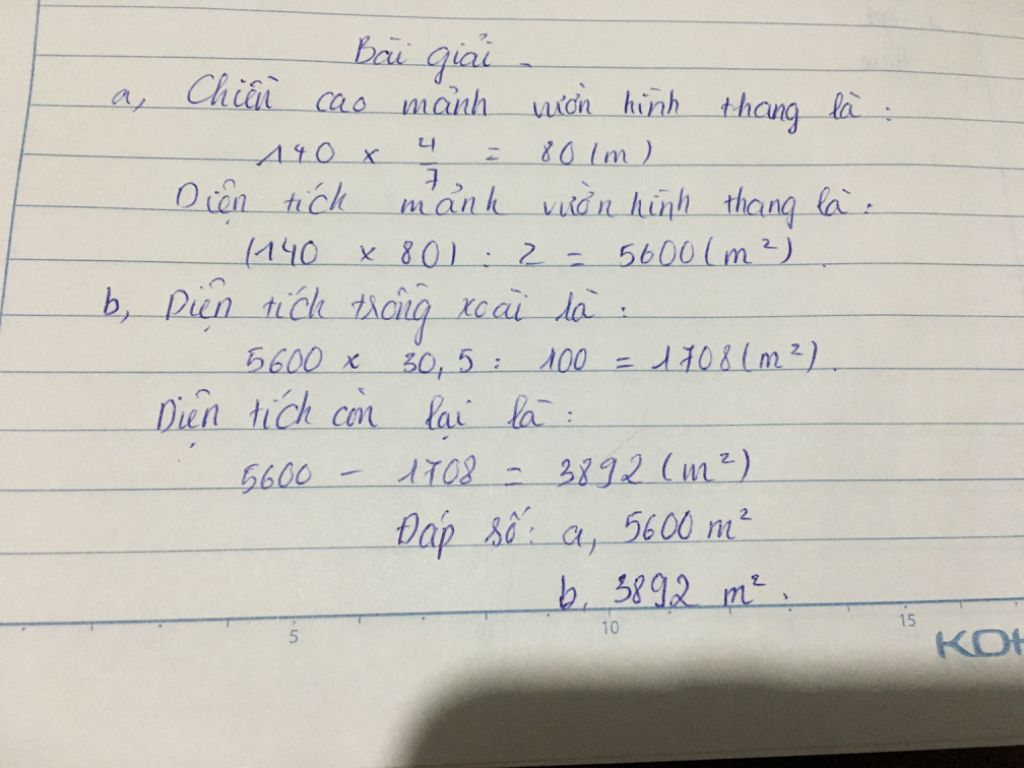 Bài giải
a, Chiều cao mảnh vườn hình thang là:
140 x 4/7 = 80 (m)
Diện tích mảnh vườn hình thang là:
(140 x 80) : 2 = 5600 (m²).
b, Diện tích trồng xoài là:
5600 x 30,5 : 100 = 1708 (m²).
Diện tích còn lại là:
5600 - 1708 = 3892 (m²)
Đáp số: a, 5600 m²
b, 3892 m².
5 10 15